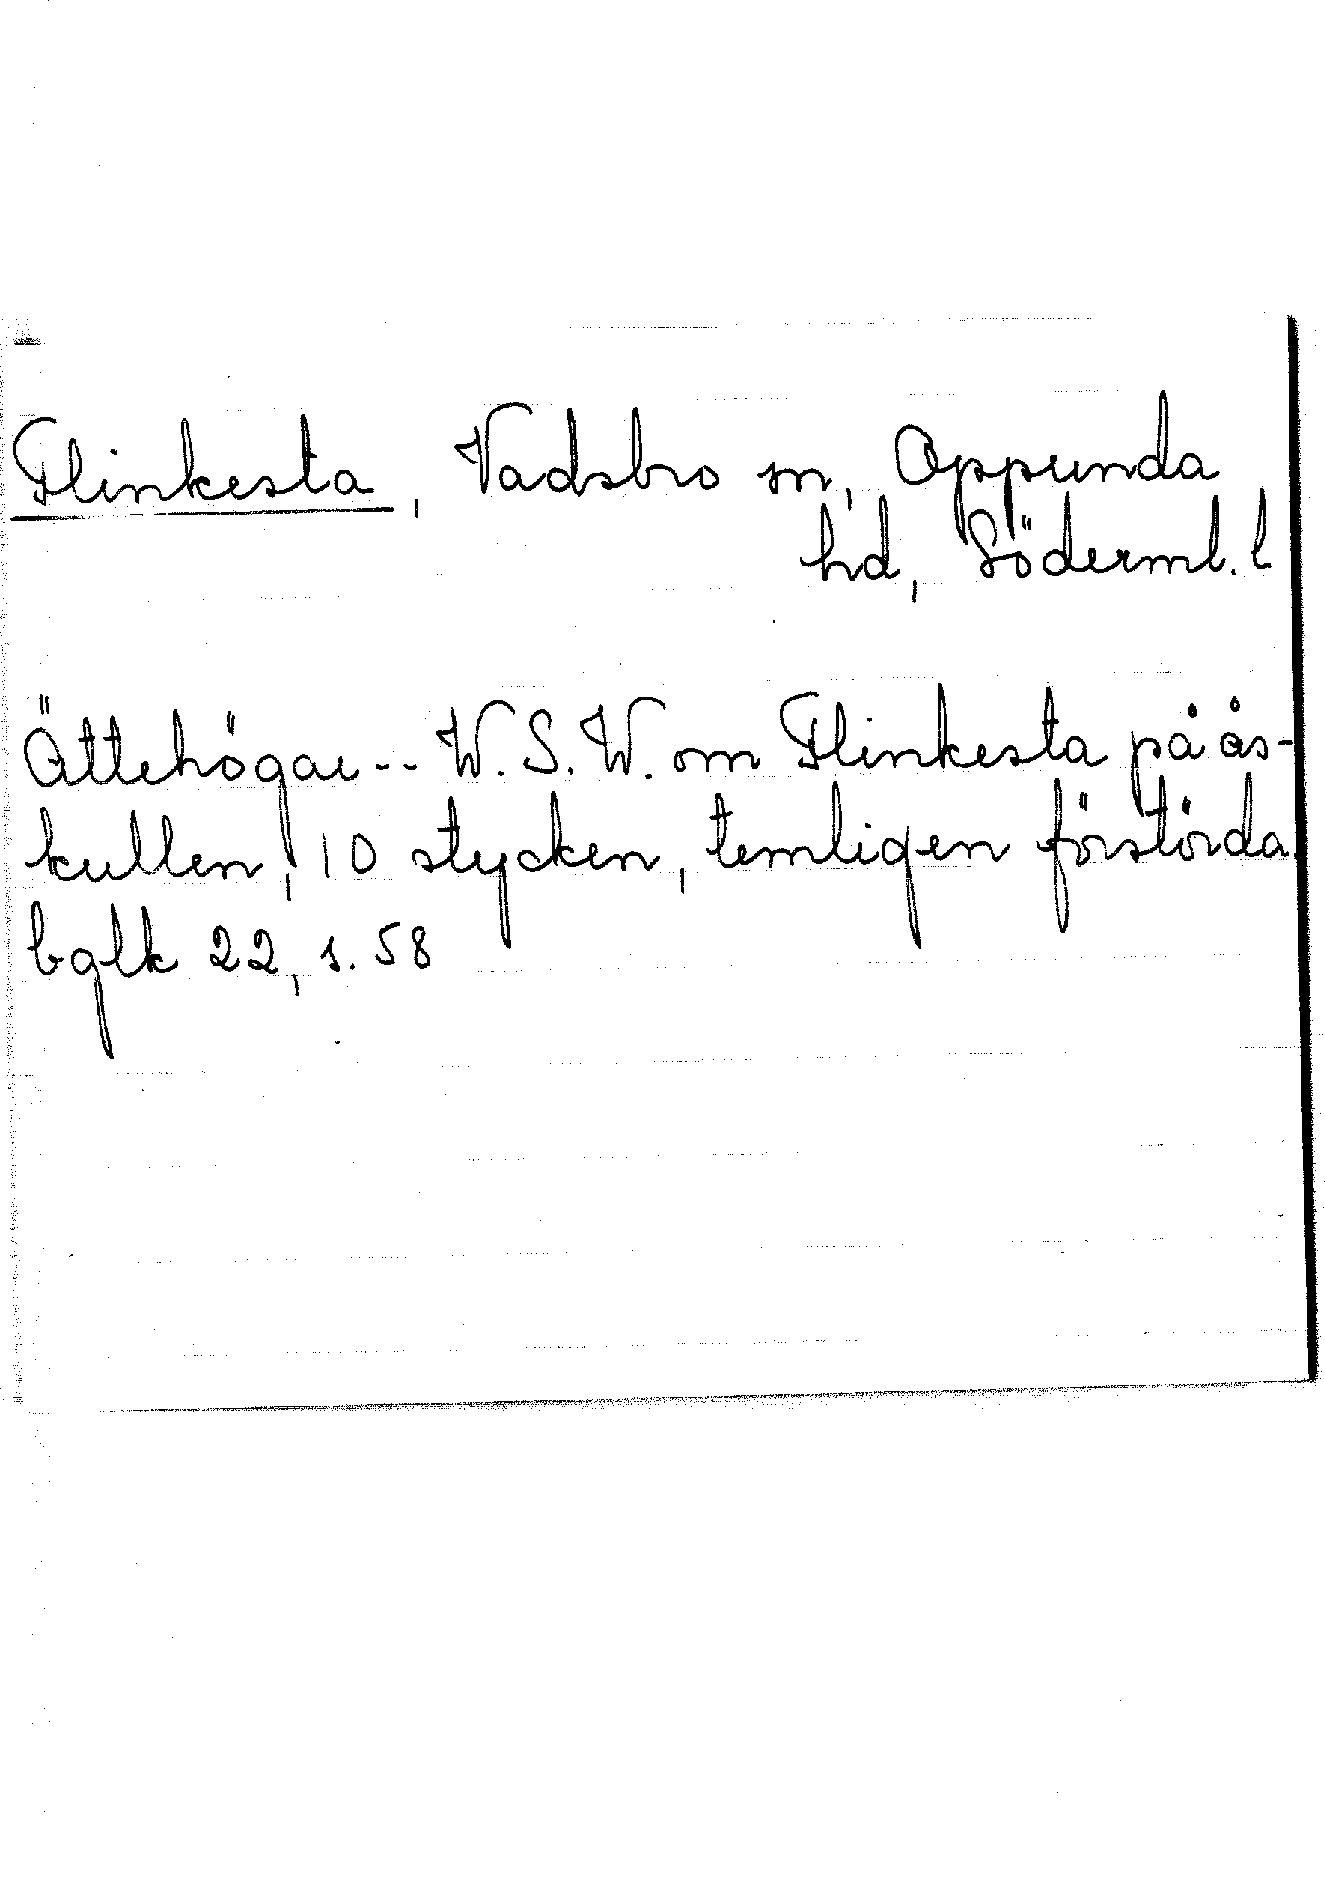 Flinkesta, Vadsbro sn, Oppunda
hd, Söderml. l
Ättehögar -- W. S. W. om Flinkesta på ås-
kullen, 10 stycken, temligen förstörda.
bglk 22, s. 58